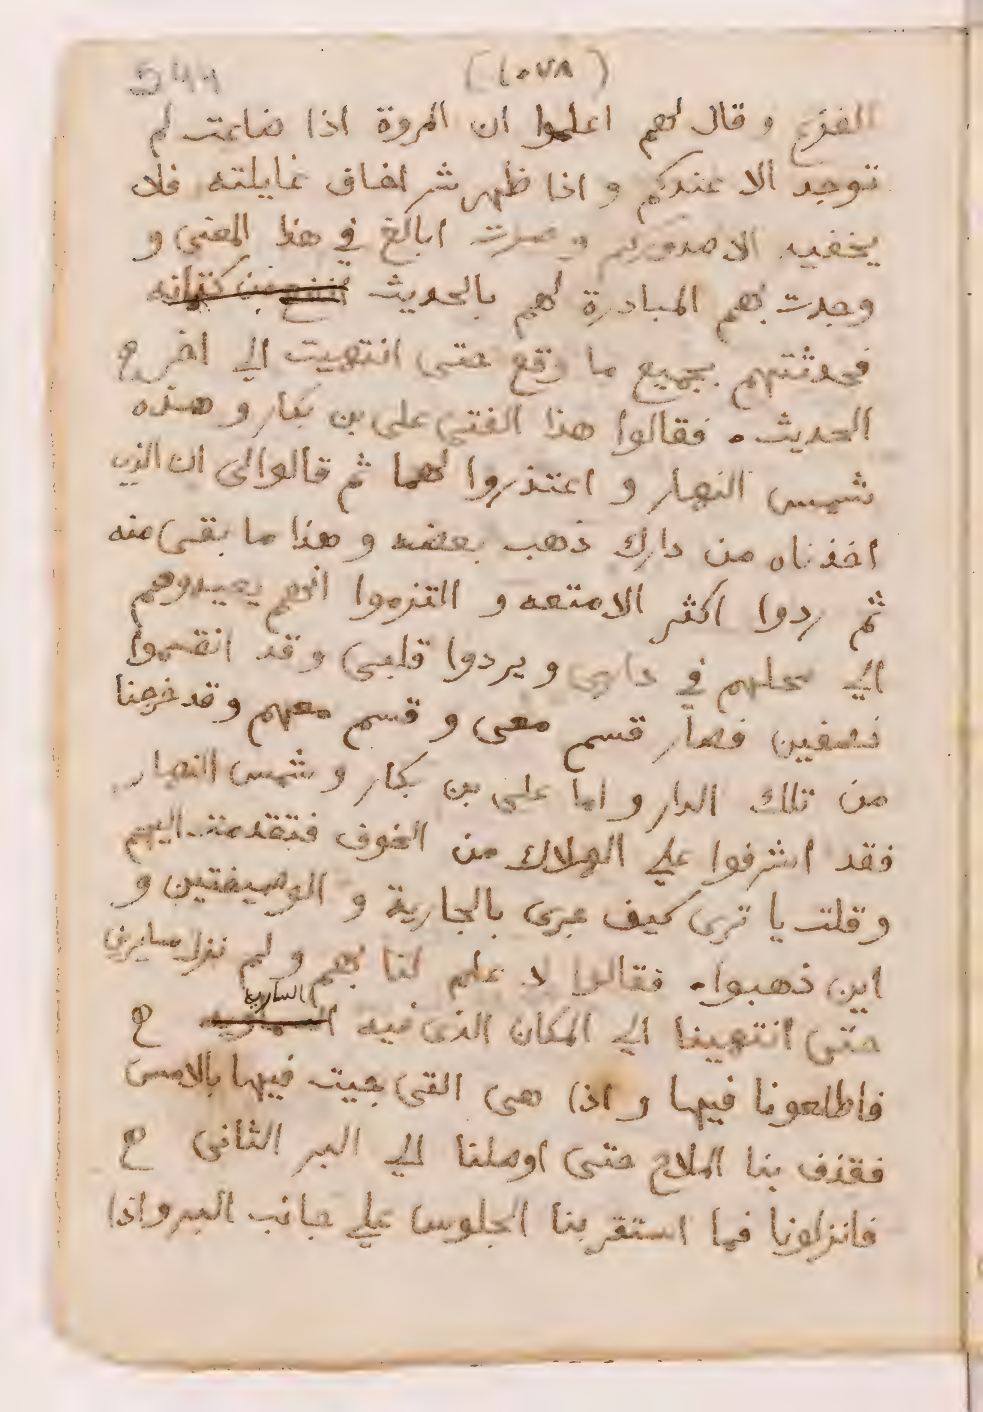 544 (١٠٧٨)
الفزع و قال لهم اعلموا ان المروة اذا ضاعت لم
توجد الا عندكم و اذا ظهر شر اخاف غايلته فلا
يخفيه الا صدوركم و صرت ابالغ في هذا المعنى و
وجدت بهم المبادرة لهم بالحديث انفع من كتمانه
فحدثتهم بجميع ما وقع حتى انتهيت الي اخر ح
الحديث . فقالوا هذا الفتى على بن بكار و هذه
شمس النهار و اعتذروا لهما ثم قالوا لى ان الذى
اخذناه من دارك ذهب بعضه و هذا ما بقى منه
ثم ردوا اكثر الامتعه و التزموا انهم يعيدوهم
الي محلهم في دارى و يردوا قلبى و قد انقسموا
نصفين فصار قسم معى و قسم معهم و قد خرجنا
من تلك الدار و اما على بن بكار و شمس النهار
فقد اشرفوا علي الهلاك من الخوف فتقدمت اليهم
و قلت يا ترى كيف جرى بالجارية و الوصيفتين و
اين ذهبوا . فقالوا لا علم لنا بهم و لم نزل سايرين
السارية
حتى انتهينا الي المكان الذى فيه ح
فاطلعونا فيها و اذا هى التى جيت فيها بالامس
فقذف بنا الملاح حتى اوصلنا الي البر الثانى ح
فانزلونا فما استقر بنا الجلوس علي جانب البر و اذا